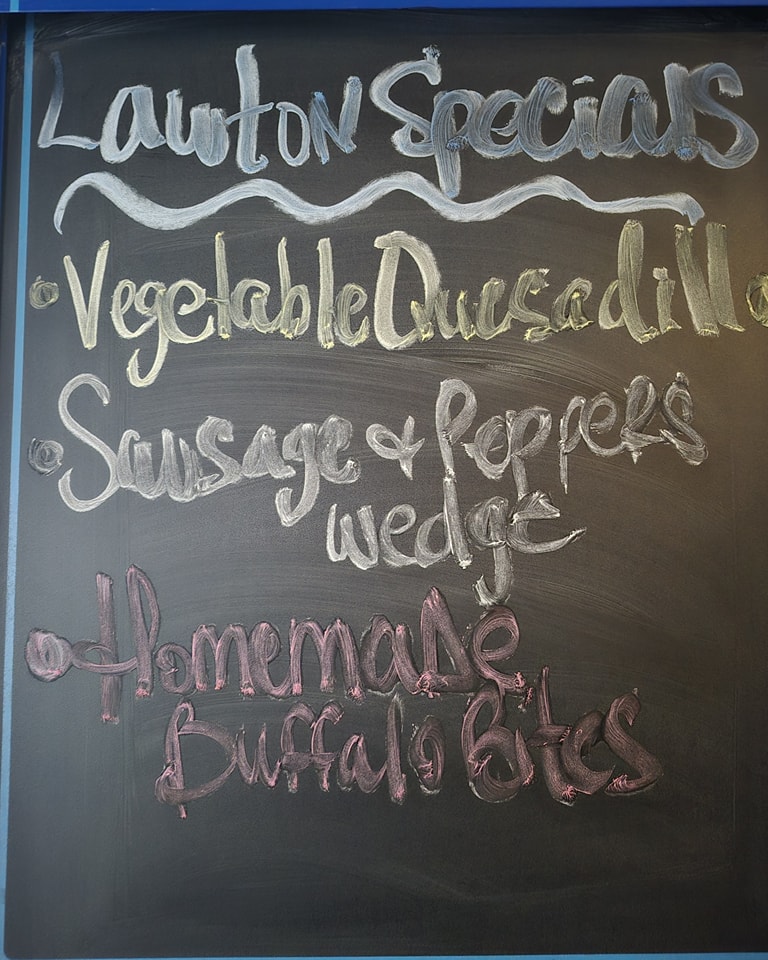 Lawton Specials
• Vegetable Quesadilla
• Sausage & Peppers
wedge
• Homemade
Buffalo Bites